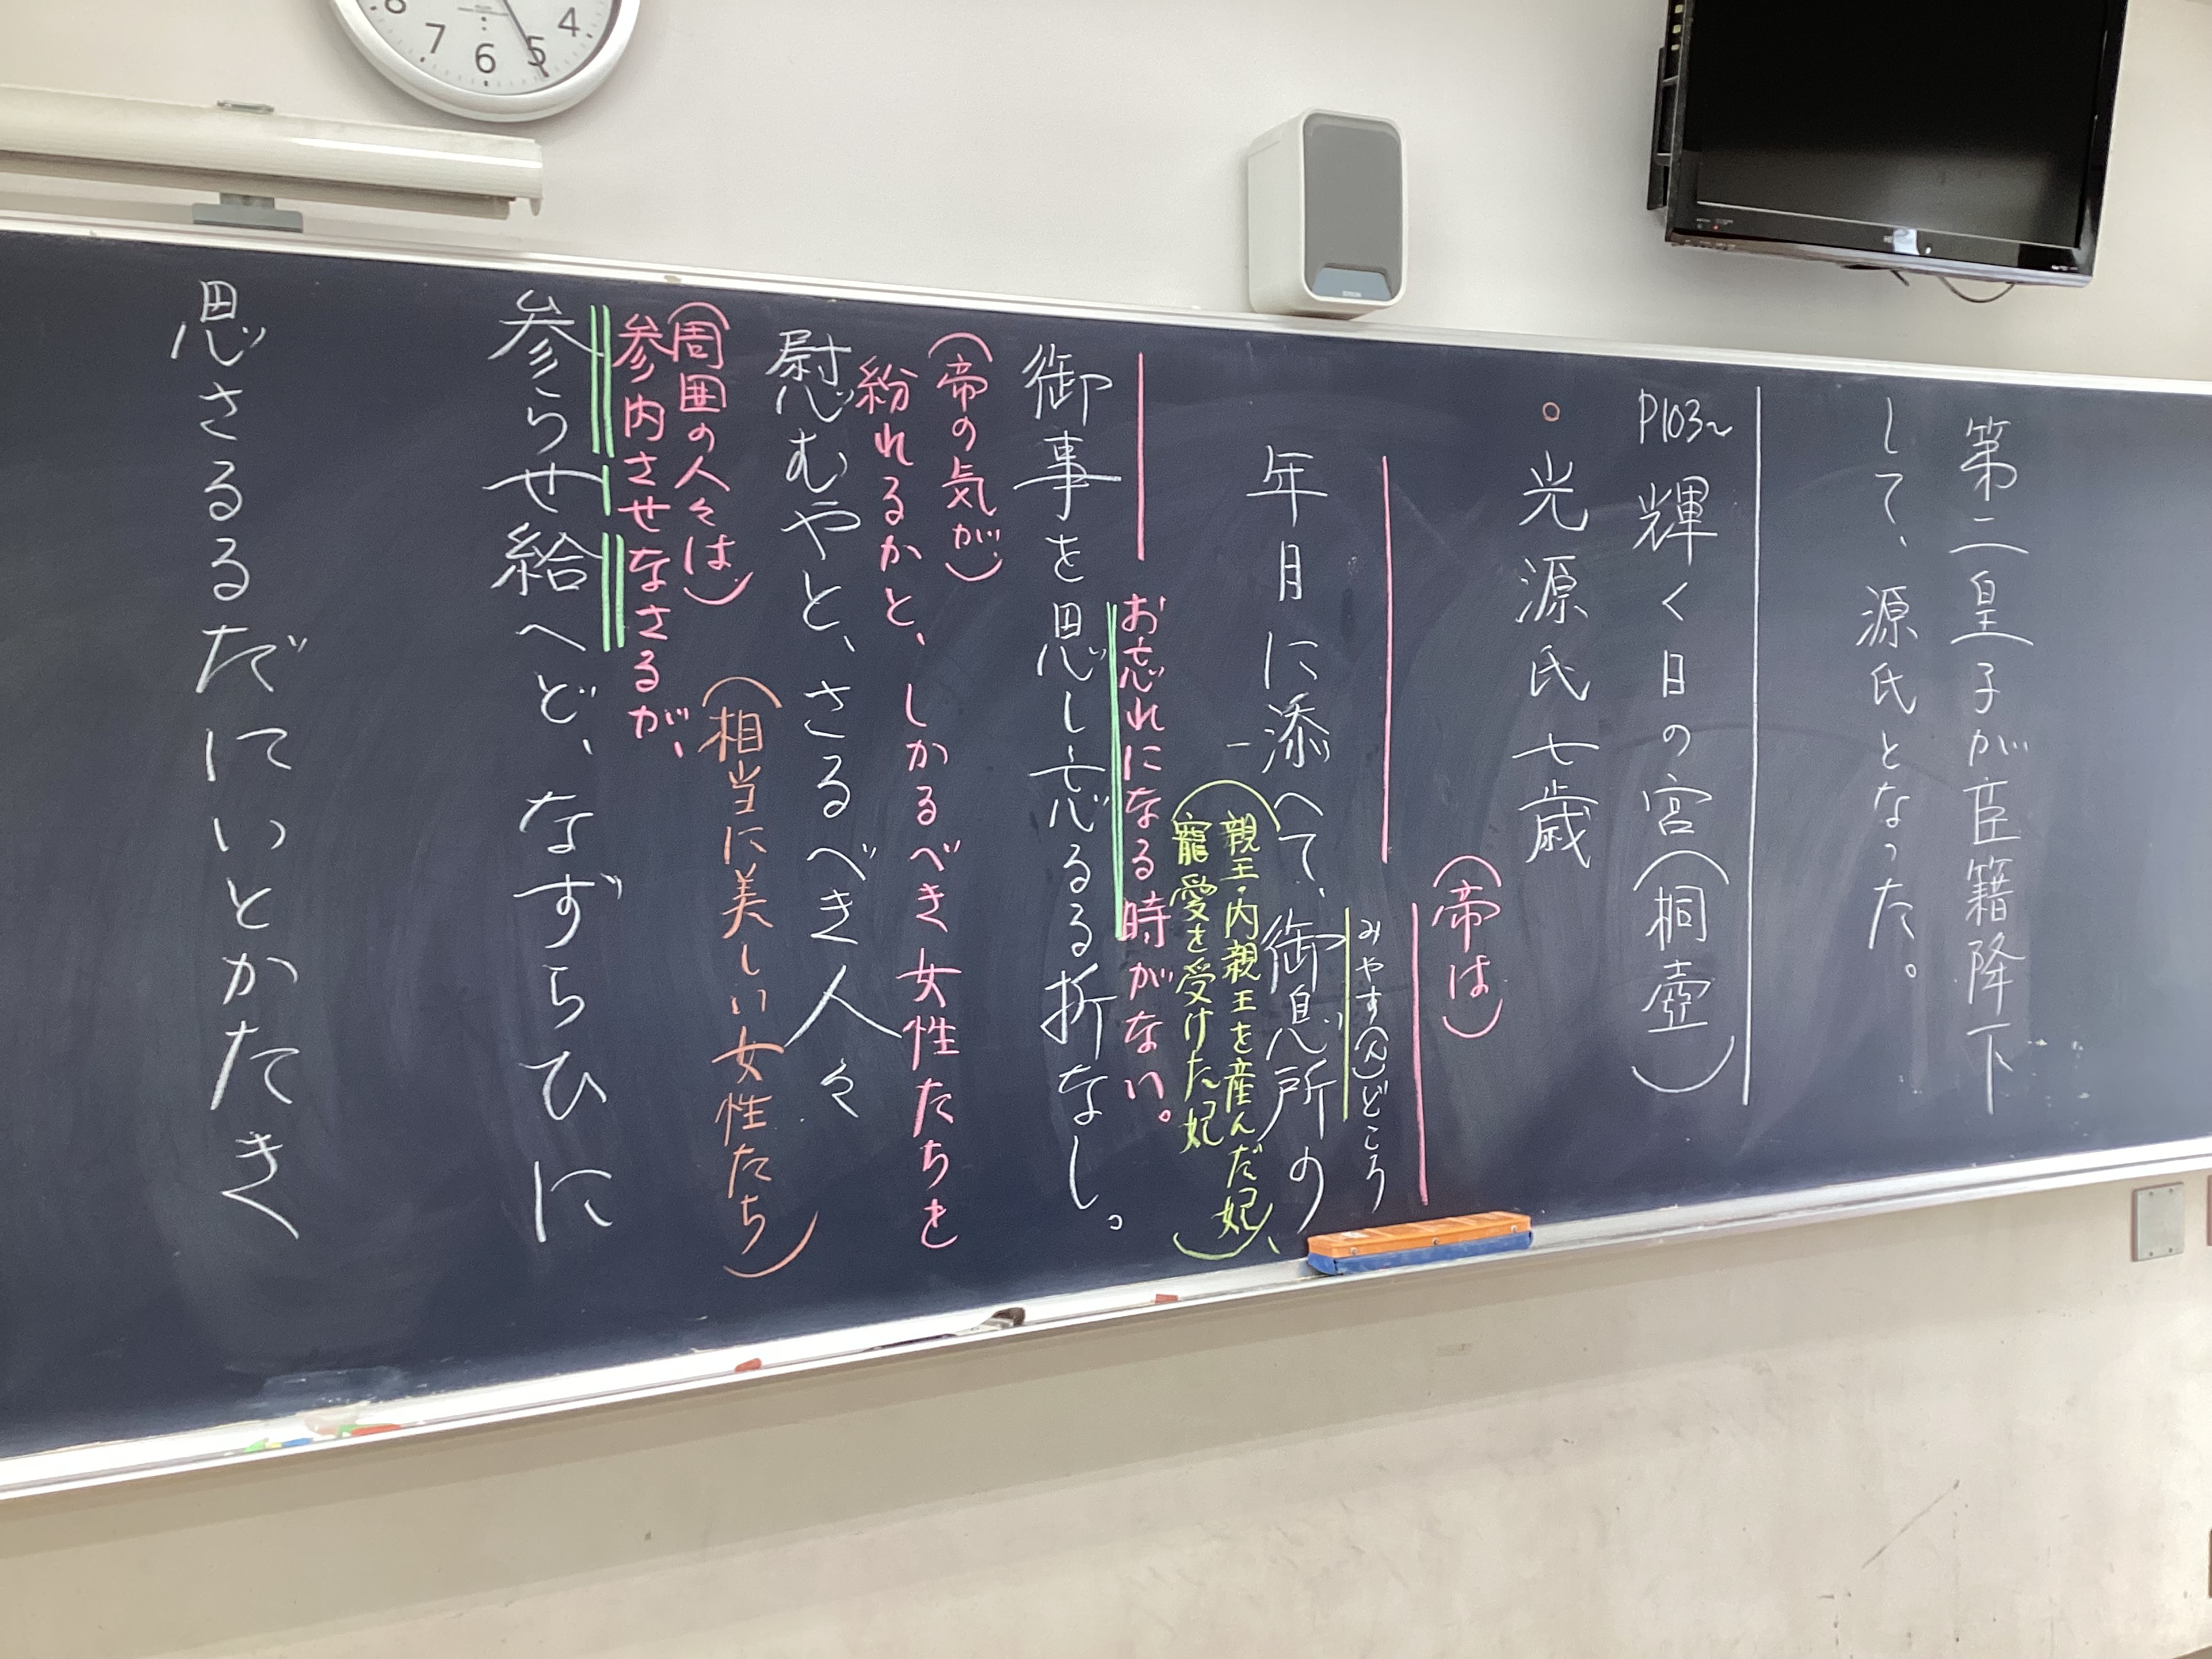 第二皇子が臣籍降下
して、源氏となった。
P103~ 輝く日の宮(桐壺)
光源氏七歳
(帝は)
みやす(ん)どころ
年月に添へて、御息所の
(親王・内親王を産んだ妃、
寵愛を受けた妃)
お忘れになる時がない。
御事を思し忘るる折なし。
(帝の気が)
紛れるかと、しかるべき女性たちを
慰むやと、さるべき人々
(相当に美しい女性たち)
(周囲の人々は)
参内させなさるが、
参らせ給へど、なずらひに
思さるるだにいとかたき
4
5
6
7
8